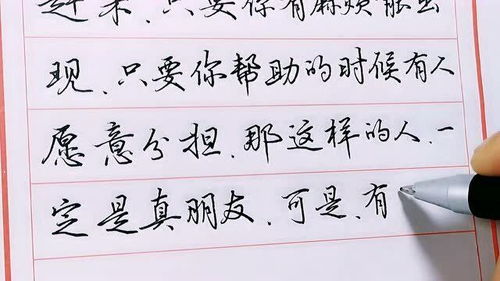 赶来,只要你有麻烦能出
现,只要你帮助的时候有人
愿意分担,那这样的人,一
定是真朋友,可是,有